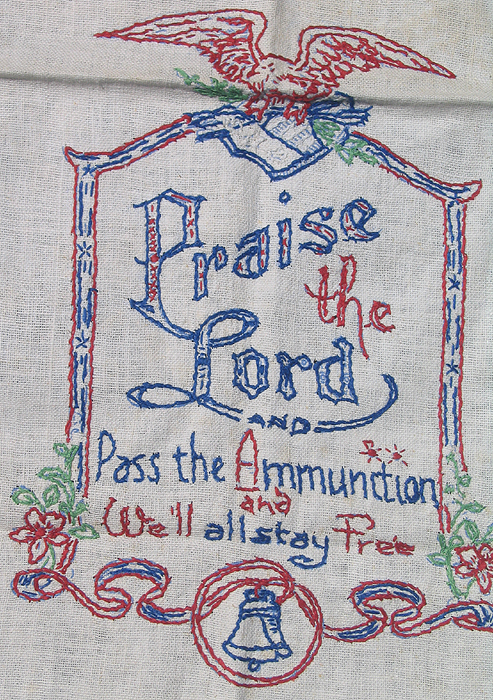 Praise
the
Lord
AND
Pass the Ammunition
and
We'll all stay Free